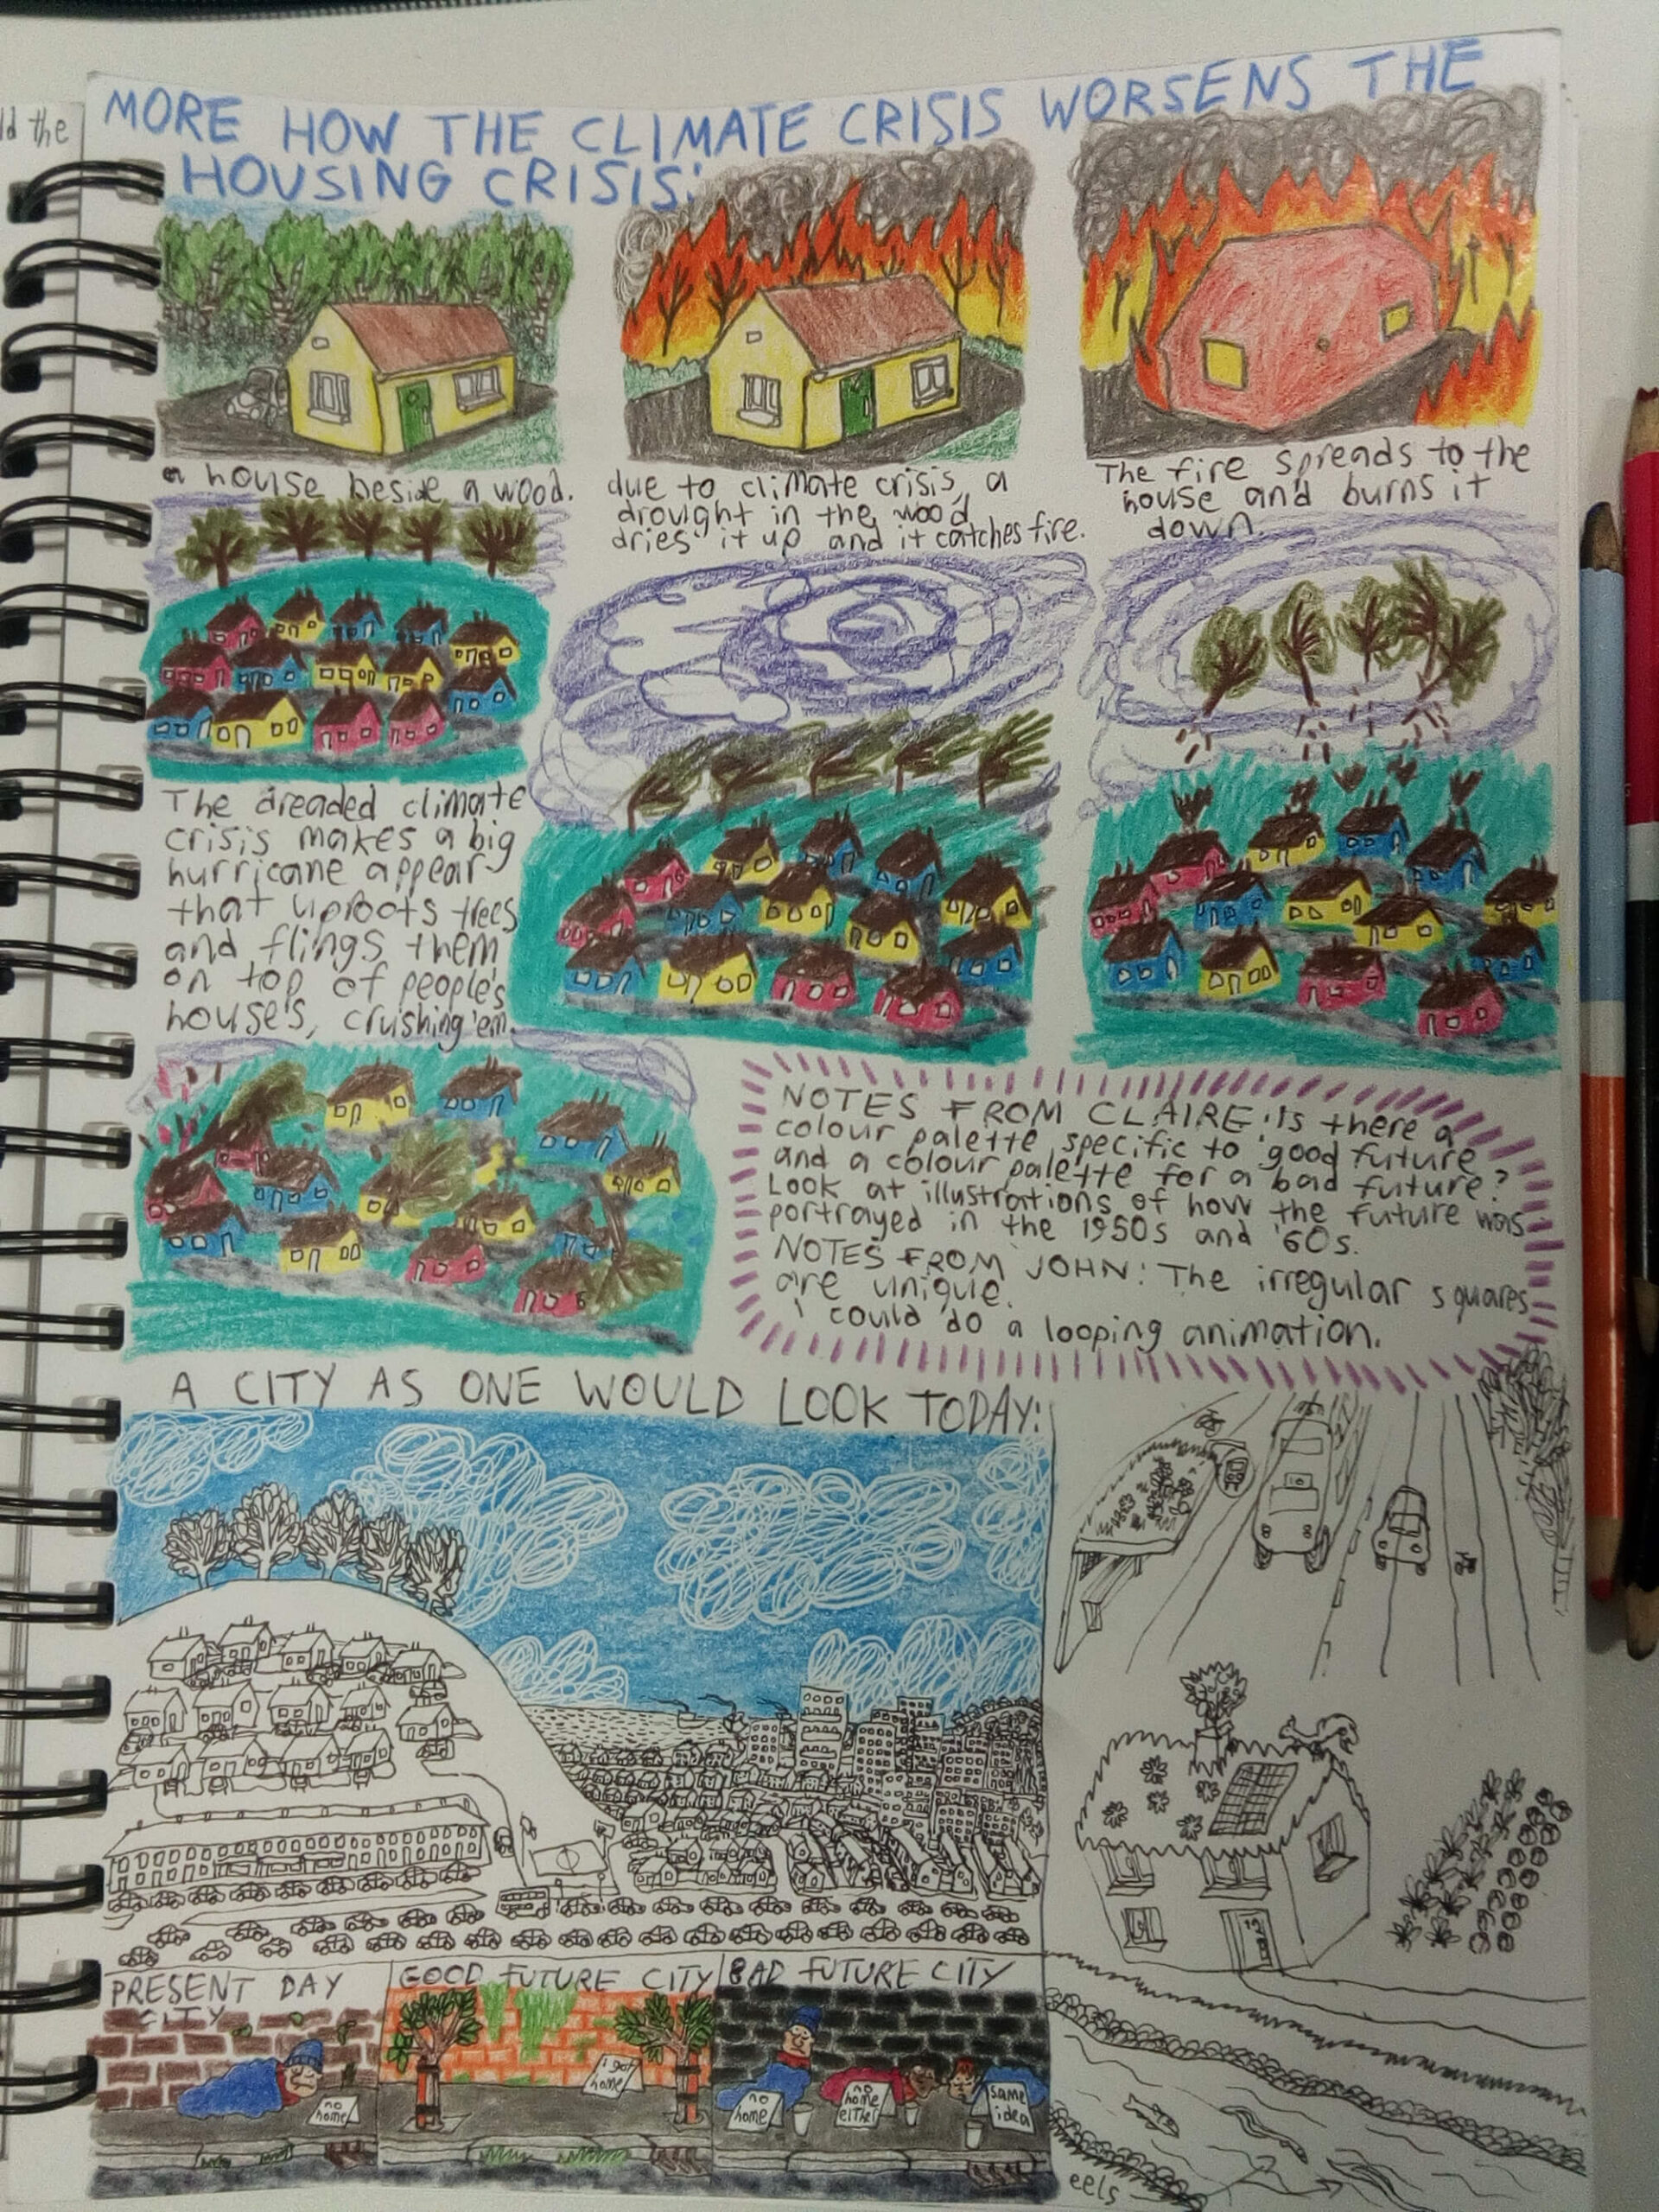 ld the
MORE HOW THE CLIMATE CRISIS WORSENS THE
HOUSING CRISIS:
a house beside a wood.
due to climate crisis, a
drought in the wood
dries it up and it catches fire.
The fire spreads to the
house and burns it
down.
The dreaded climate
crisis makes a big
hurricane appear
that uproots trees
and flings them
on top of people's
house's, crushing 'em.
NOTES FROM CLAIRE: Is there a
colour palette specific to 'good future'
and a colour palette for a bad future?
Look at illustrations of how the future was
portrayed in the 1950s and '60s.
NOTES FROM JOHN: The irregular squares
are unique.
I could do a looping animation.
A CITY AS ONE WOULD LOOK TODAY:
PRESENT DAY
CITY
GOOD FUTURE CITY
BAD FUTURE CITY
no
home
i got
home!
no
home
no
home
either
same
idea
eels